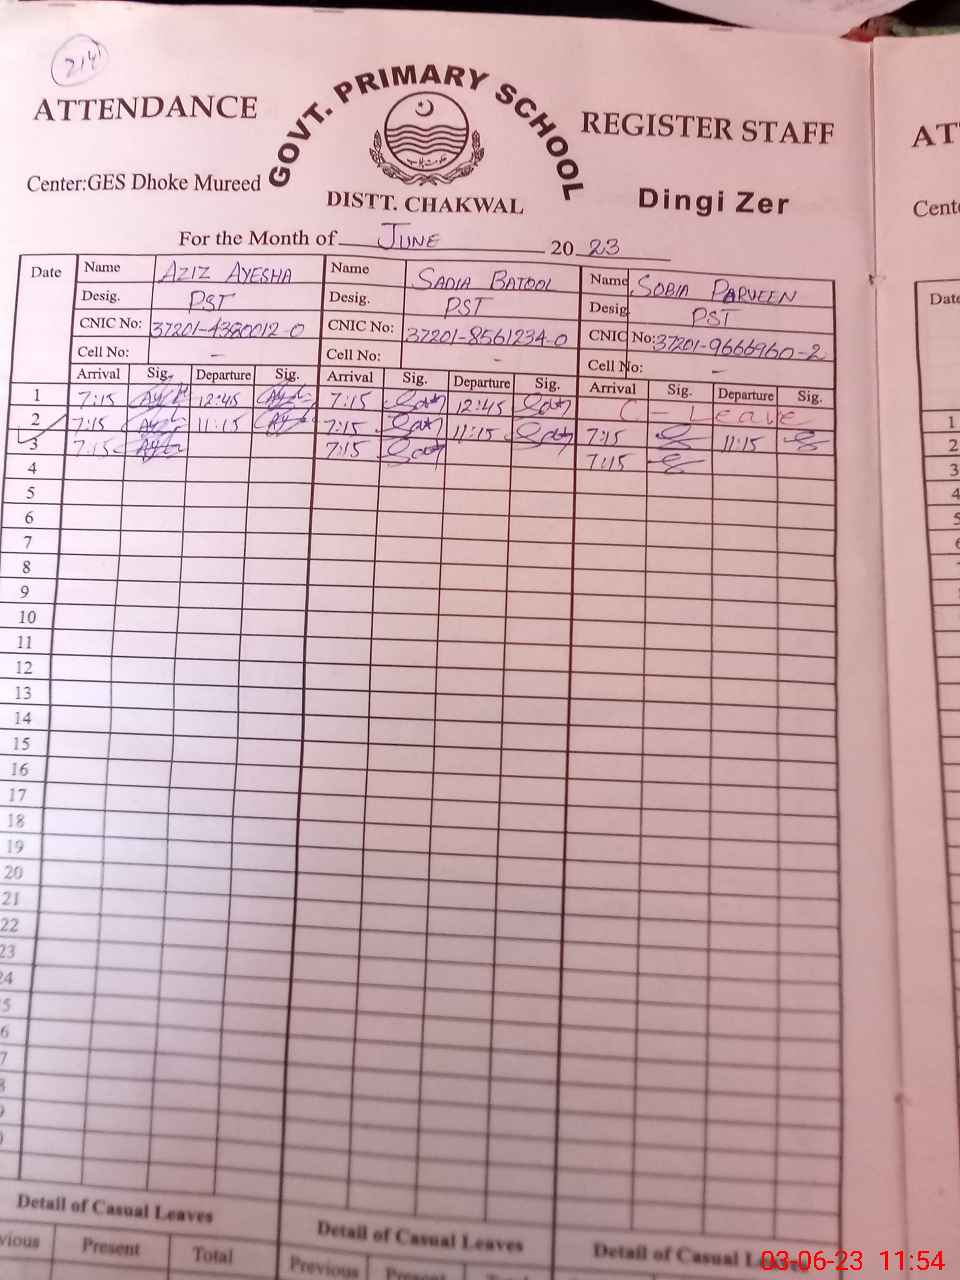 214
GOVT. PRIMARY SCHOOL
ATTENDANCE
REGISTER STAFF
Center:GES Dhoke Mureed
DISTT. CHAKWAL
Dingi Zer
For the Month of JUNE 2023
Date
Name AZIZ AYESHA
Name SADIA BATOOL
Name SOBIA PARVEEN
Desig. PST
Desig. PST
Desig. PST
CNIC No: 37201-4380012-0
CNIC No: 37201-8561234-0
CNIC No: 37201-9666960-2
Cell No: -
Cell No: -
Cell No: -
Arrival Sig. Departure Sig. Arrival Sig. Departure Sig. Arrival Sig. Departure Sig.
1 7:15 12:45 7:15 12:45 C - Leave
2 7:15 11:15 7:15 11:15 7:15 11:15
3 7:15 7:15 7:15
4
5
6
7
8
9
10
11
12
13
14
15
16
17
18
19
20
21
22
23
24
5
6
7
8
9
Detail of Casual Leaves
Detail of Casual Leaves
Detail of Casual Leaves
vious Present Total
Previous Present
AT
Cente
Date
1
2
3
4
5
6
03-06-23 11:54